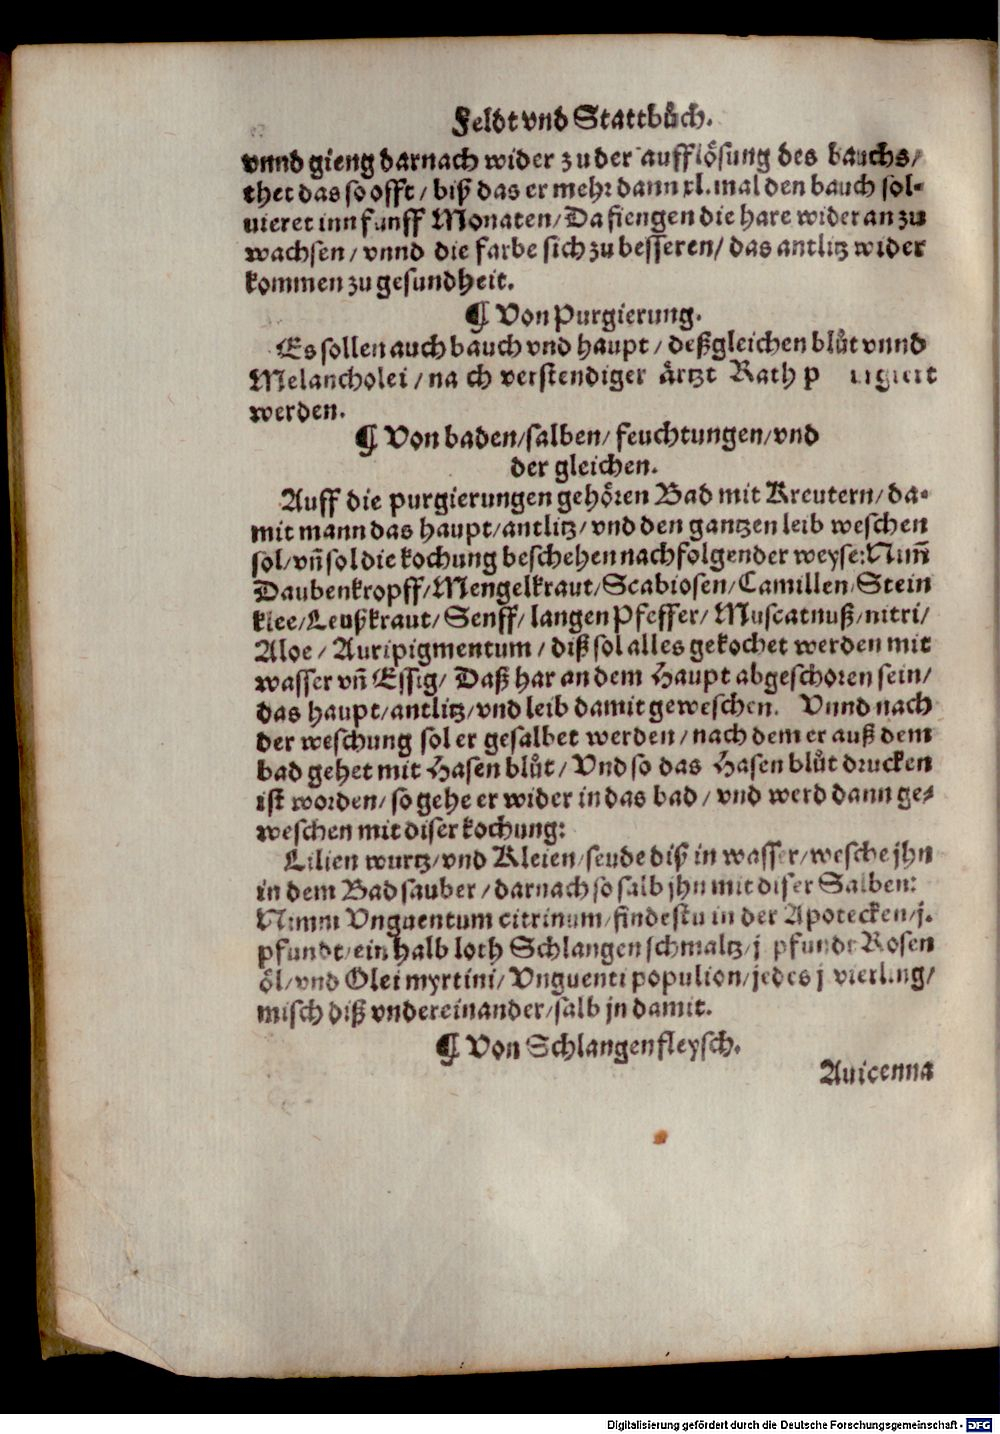 Feldt vnd Stattbůch.
vnnd gieng darnach wider zu der aufflösung des bauchs/
thet das so offt / biß das er mehr dann xl. mal den bauch sol-
uieret inn funff Monaten / Da fiengen die hare wider an zu
wachsen / vnnd die farbe sich zu besseren / das antlitz wider
kommen zu gesundheit.
¶ Von Purgierung.
Es sollen auch bauch vnd haupt / deßgleichen blůt vnnd
Melancholei / na ch verstendiger ärtzt Rath p urgiert
werden.
¶ Von baden / salben / feuchtungen / vnd
der gleichen.
Auff die purgierungen gehören Bad mit Kreutern / da-
mit mann das haupt / antlitz / vnd den gantzen leib weschen
sol / vñ sol die kochung beschehen nachfolgender weyse: Nim̃
Daubenkropff / Mengelkraut / Scabiosen / Camillen / Stein
klee / Leußkraut / Senff / langen Pfeffer / Muscatnuß / nitri /
Aloe / Auripigmentum / diß sol alles gekochet werden mit
wasser vñ Essig / Daß har an dem Haupt abgeschoren sein /
das haupt / antlitz / vnd leib damit geweschen. Vnnd nach
der weschung sol er gesalbet werden / nach dem er auß dem
bad gehet mit Hasen blůt / Vnd so das Hasen blůt drucken
ist worden / so gehe er wider in das bad / vnd werd dann ge-
weschen mit diser kochung:
Lilien wurtz / vnd Kleien / seude diß in wasser / wesche jhn
in dem Bad sauber / darnach so salb jhn mit diser Salben:
Nimm Vnguentum citrinum / findestu in der Apotecken / j.
pfundt / ein halb loth Schlangen schmaltz / j pfundt Rosen
öl / vnd Olei myrtini / Vnguenti populion / jedes j vierling /
misch diß vndereinander / salb jn damit.
¶ Von Schlangenfleysch.
Auicenna
Digitalisierung gefördert durch die Deutsche Forschungsgemeinschaft - DFG